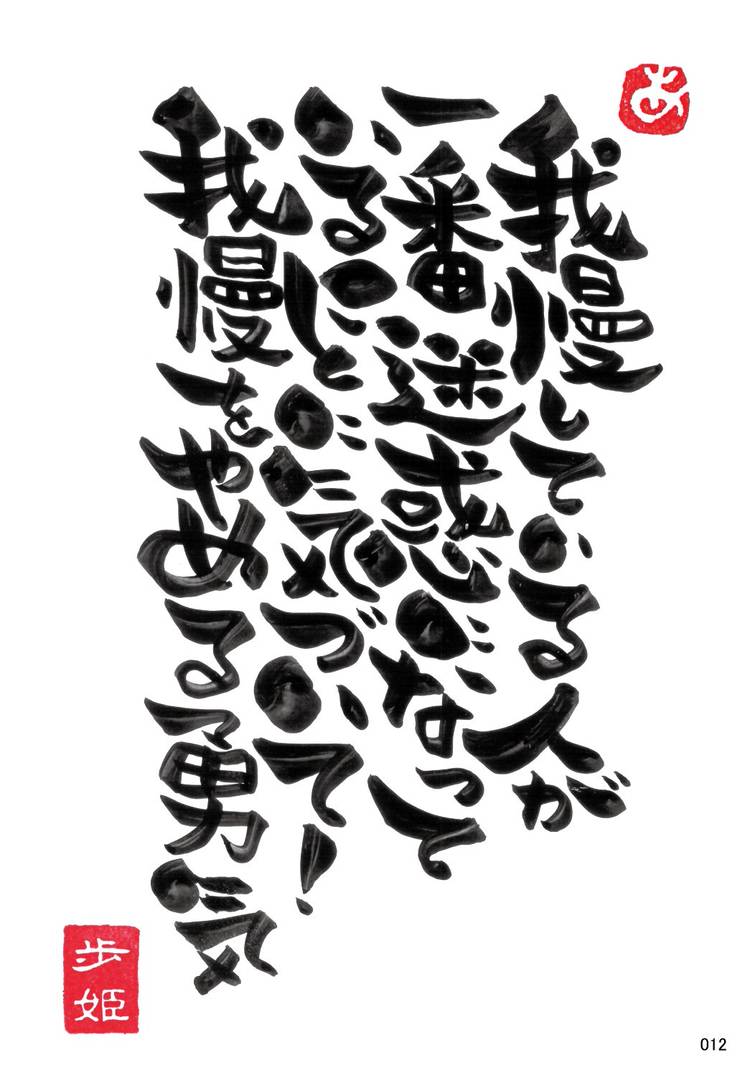 あ
我慢している人が
一番迷惑になって
いることに気づいて!
我慢をやめる勇気
歩姫
012